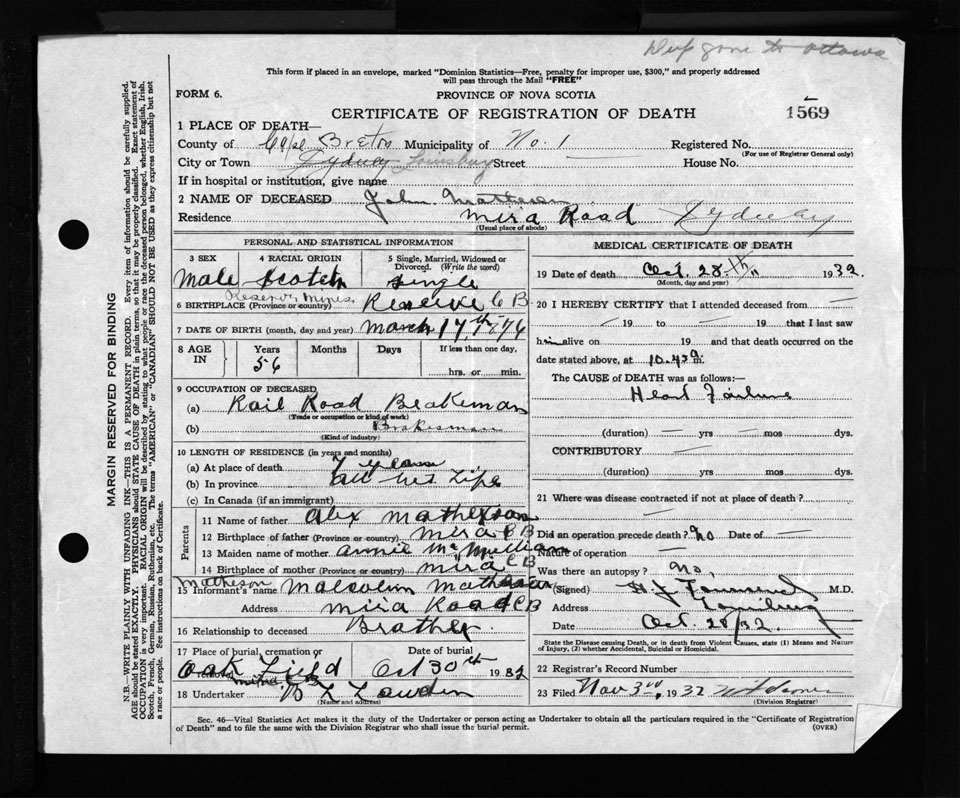 Dup gone to Ottawa
This form if placed in an envelope, marked "Dominion Statistics—Free, penalty for improper use, $300," and properly addressed
will pass through the Mail "FREE"
FORM 6.
PROVINCE OF NOVA SCOTIA
CERTIFICATE OF REGISTRATION OF DEATH
1569
1 PLACE OF DEATH—
County of Cape Breton Municipality of No. 1 Registered No.
(For use of Registrar General only)
City or Town Sydney Louisburg Street — House No.
If in hospital or institution, give name
2 NAME OF DECEASED John Matheson
Residence Mira Road Sydney
(Usual place of abode)
PERSONAL AND STATISTICAL INFORMATION
3 SEX 4 RACIAL ORIGIN 5 Single, Married, Widowed or Divorced. (Write the word)
Male Scotch Single
Reserve Mines
6 BIRTHPLACE (Province or country) Reserve C B
7 DATE OF BIRTH (month, day and year) March 17th 1876
8 AGE IN Years Months Days If less than one day,
56 hrs. or min.
9 OCCUPATION OF DECEASED
(a) Rail Road Brakeman
(Trade or occupation or kind of work)
(b) Brakesman
(Kind of industry)
10 LENGTH OF RESIDENCE (in years and months)
(a) At place of death 7 years
(b) In province all his Life
(c) In Canada (if an immigrant)
Parents
11 Name of father Alex Matheson
12 Birthplace of father (Province or country) Mira C B
13 Maiden name of mother Annie McMullian
14 Birthplace of mother (Province or country) Mira C B
Matheson
15 Informant's name Malcolm Matheson
Address Mira Road C B
16 Relationship to deceased Brother.
17 Place of burial, cremation or Date of burial
Oak Field Oct 30th 1932
18 Undertaker
(Name and address)
MEDICAL CERTIFICATE OF DEATH
19 Date of death Oct. 28th 1932.
(Month, day and year)
20 I HEREBY CERTIFY that I attended deceased from —
— 19 to — 19 that I last saw
him alive on 19 and that death occurred on the
date stated above, at 10.45 a m.
The CAUSE of DEATH was as follows:—
Heart Failure
(duration) — yrs — mos dys.
CONTRIBUTORY —
(duration) yrs — mos dys.
21 Where was disease contracted if not at place of death? —
Did an operation precede death? No Date of —
Nature of operation —
Was there an autopsy? No,
(Signed) M.D.
Address Louisburg
Date Oct. 28/32.
State the Disease causing Death, or in death from Violent Causes, state (1) Means and Nature
of Injury, (2) whether Accidental, Suicidal or Homicidal.
22 Registrar's Record Number
23 Filed Nov 3rd, 1932
(Division Registrar)
Sec. 46—Vital Statistics Act makes it the duty of the Undertaker or person acting as Undertaker to obtain all the particulars required in the "Certificate of Registration
of Death" and to file the same with the Division Registrar who shall issue the burial permit.
(OVER)
MARGIN RESERVED FOR BINDING
N.B.—WRITE PLAINLY WITH UNFADING INK—THIS IS A PERMANENT RECORD. Every item of information should be carefully supplied.
AGE should be stated EXACTLY. PHYSICIANS should STATE CAUSE OF DEATH in plain terms, so that it may be properly classified. Exact statement of
OCCUPATION is very important. RACIAL ORIGIN will be described by stating to what people or race the deceased person belonged, whether English, Irish,
Scotch, French, German, Russian, Ruthenian, etc. The terms "AMERICAN" or "CANADIAN" SHOULD NOT BE USED as they express citizenship but not
a race or people. See instructions on back of Certificate.